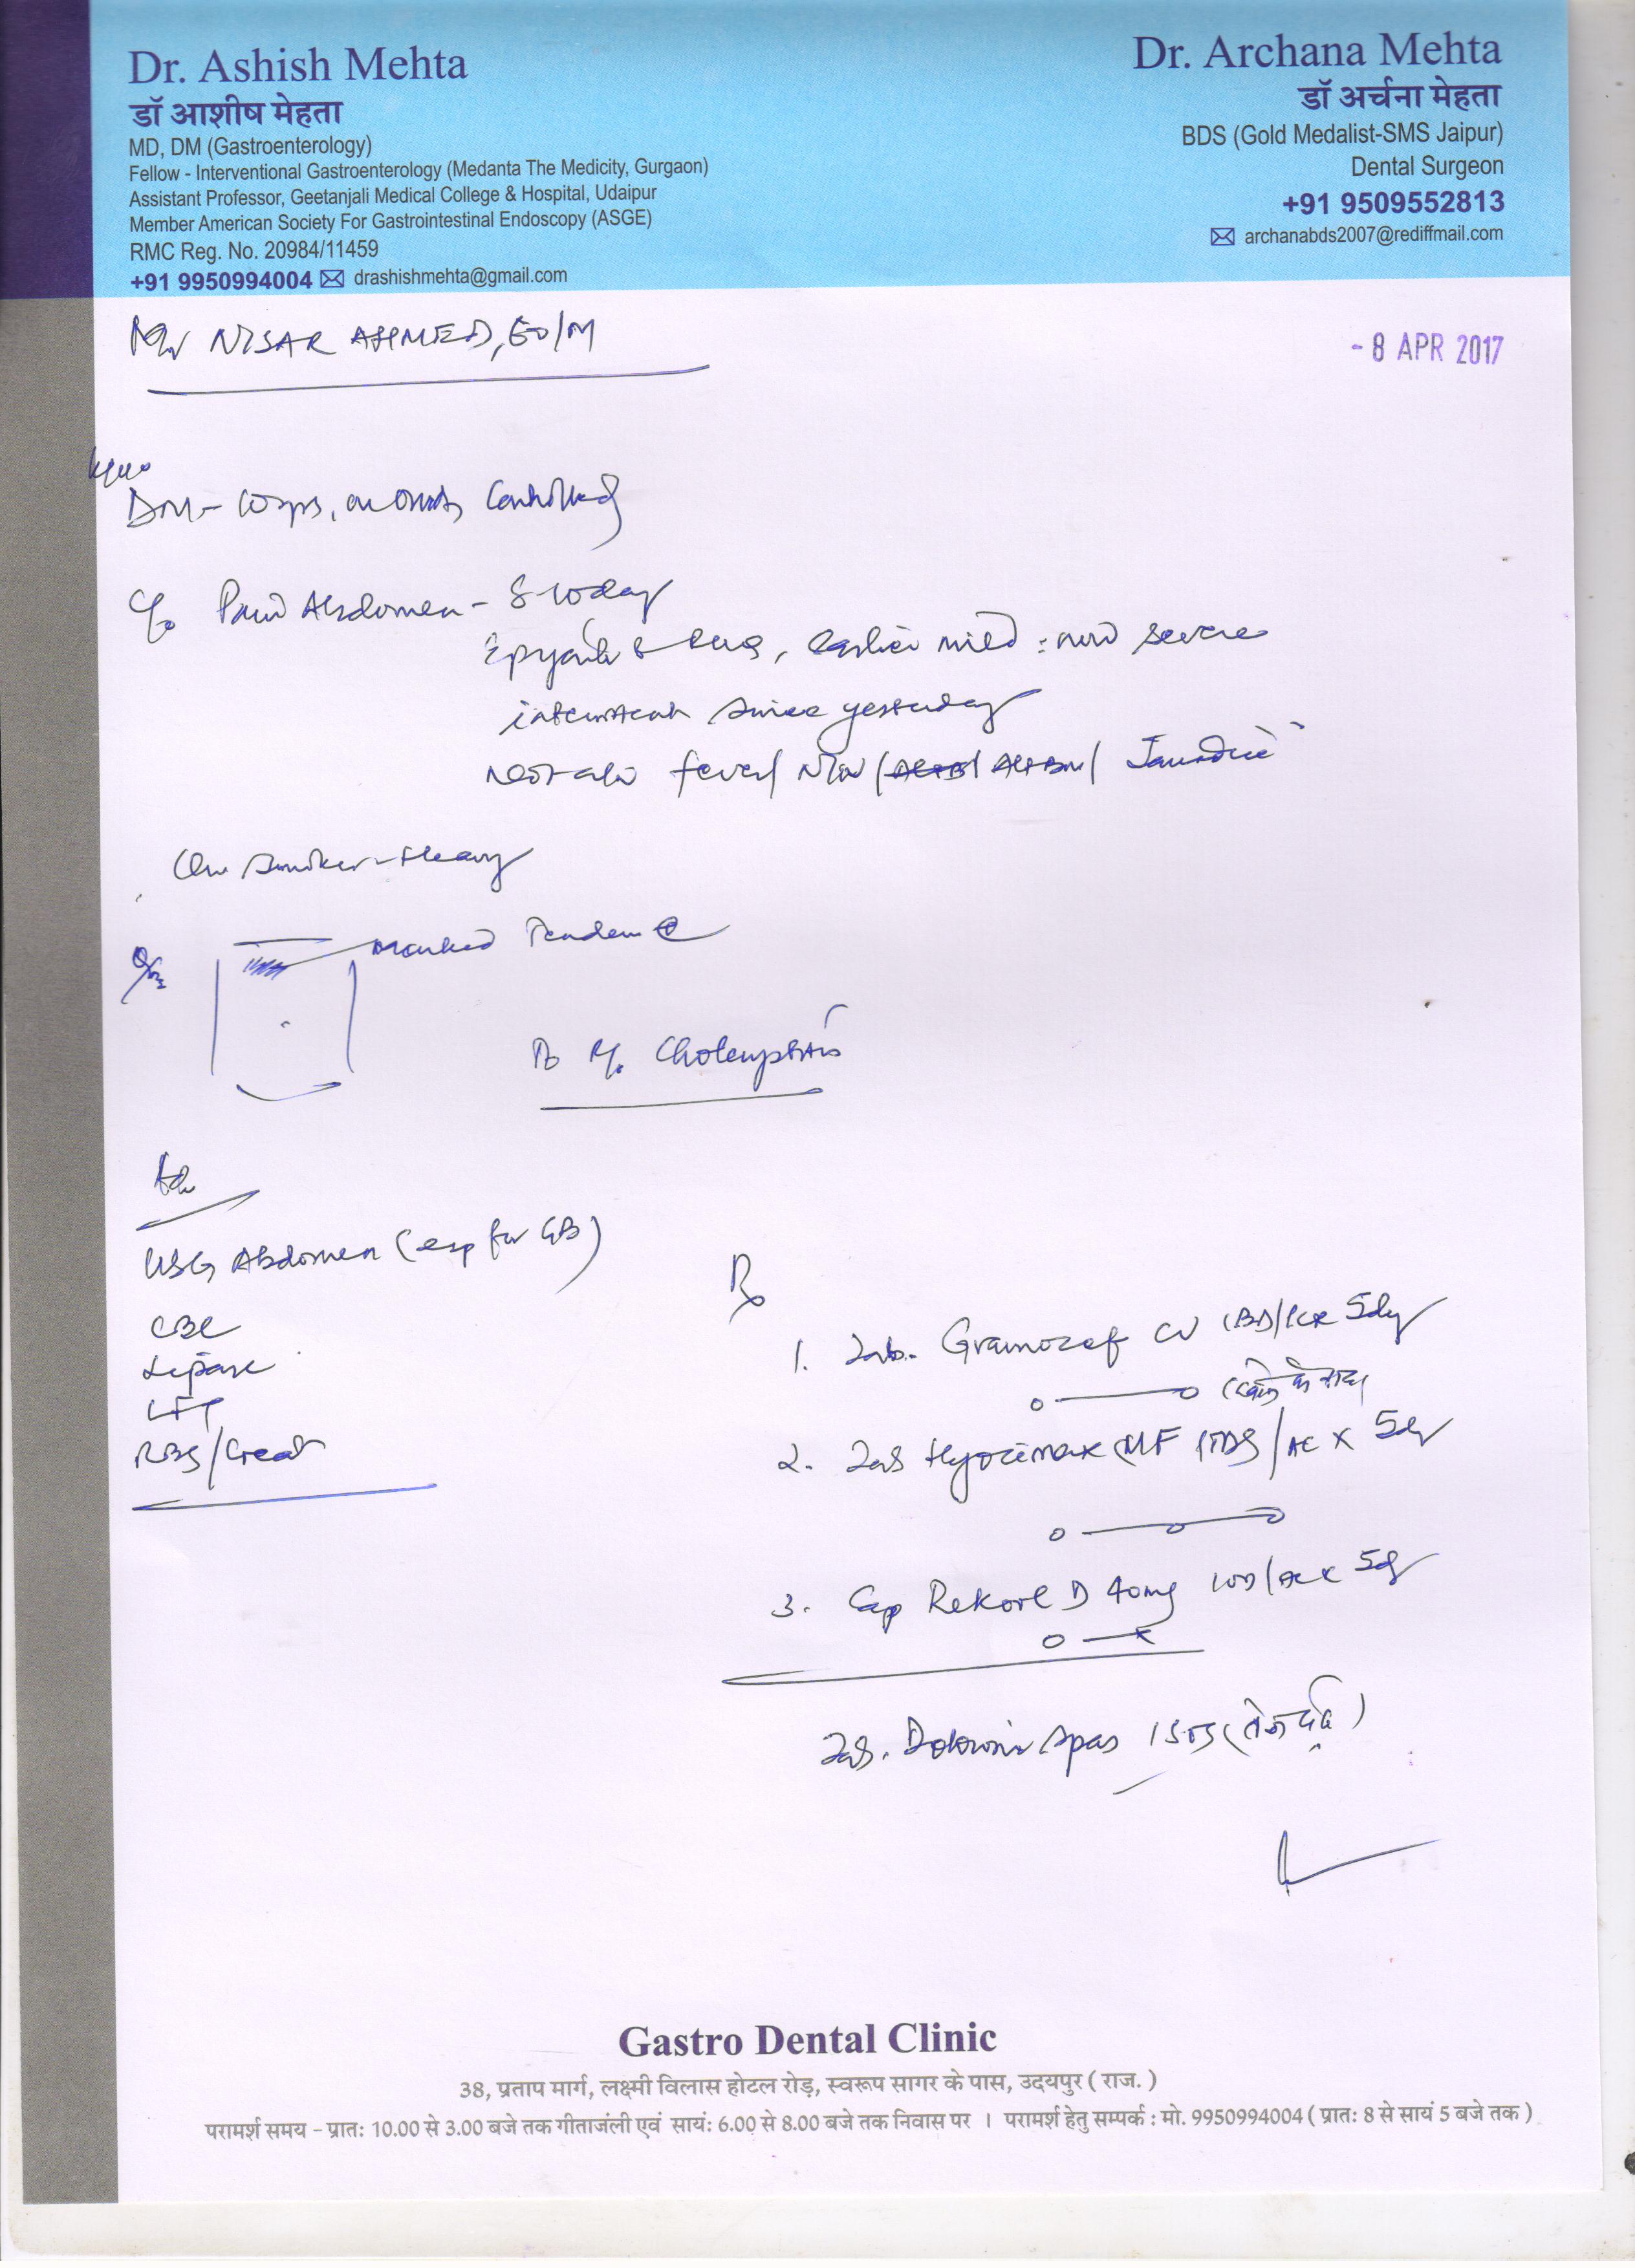 Dr. Ashish Mehta
डॉ आशीष मेहता
MD, DM (Gastroenterology)
Fellow - Interventional Gastroenterology (Medanta The Medicity, Gurgaon)
Assistant Professor, Geetanjali Medical College & Hospital, Udaipur
Member American Society For Gastrointestinal Endoscopy (ASGE)
RMC Reg. No. 20984/11459
+91 9950994004 drashishmehta@gmail.com
Dr. Archana Mehta
डॉ अर्चना मेहता
BDS (Gold Medalist-SMS Jaipur)
Dental Surgeon
+91 9509552813
archanabds2007@rediffmail.com
Mr NISAR AHMED,
- 8 APR 2017
DM - 10 yrs, controlled
c/o Pain Abdomen -
earlier mild : now severe
intermittent since yesterday
fever / Jaundice
smoker - Heavy
O/E marked Tenderness
Cholecystitis
Adv
USG Abdomen (esp for GB)
CBC
Lipase
LFT
RBS/Creat
Rx
1. Tab. Gramocef CV 1BD/ x 5day
2. Tab Hyocimax MF 1TDS/AC x 5day
3. Cap Rekool D 40mg 1OD/AC x 5d
Tab. Spas 1 SOS (तेज दर्द)
Gastro Dental Clinic
38, प्रताप मार्ग, लक्ष्मी विलास होटल रोड़, स्वरूप सागर के पास, उदयपुर ( राज. )
परामर्श समय – प्रातः 10.00 से 3.00 बजे तक गीताजंली एवं सायं: 6.00 से 8.00 बजे तक निवास पर । परामर्श हेतु सम्पर्क : मो. 9950994004 ( प्रातः 8 से सायं 5 बजे तक )